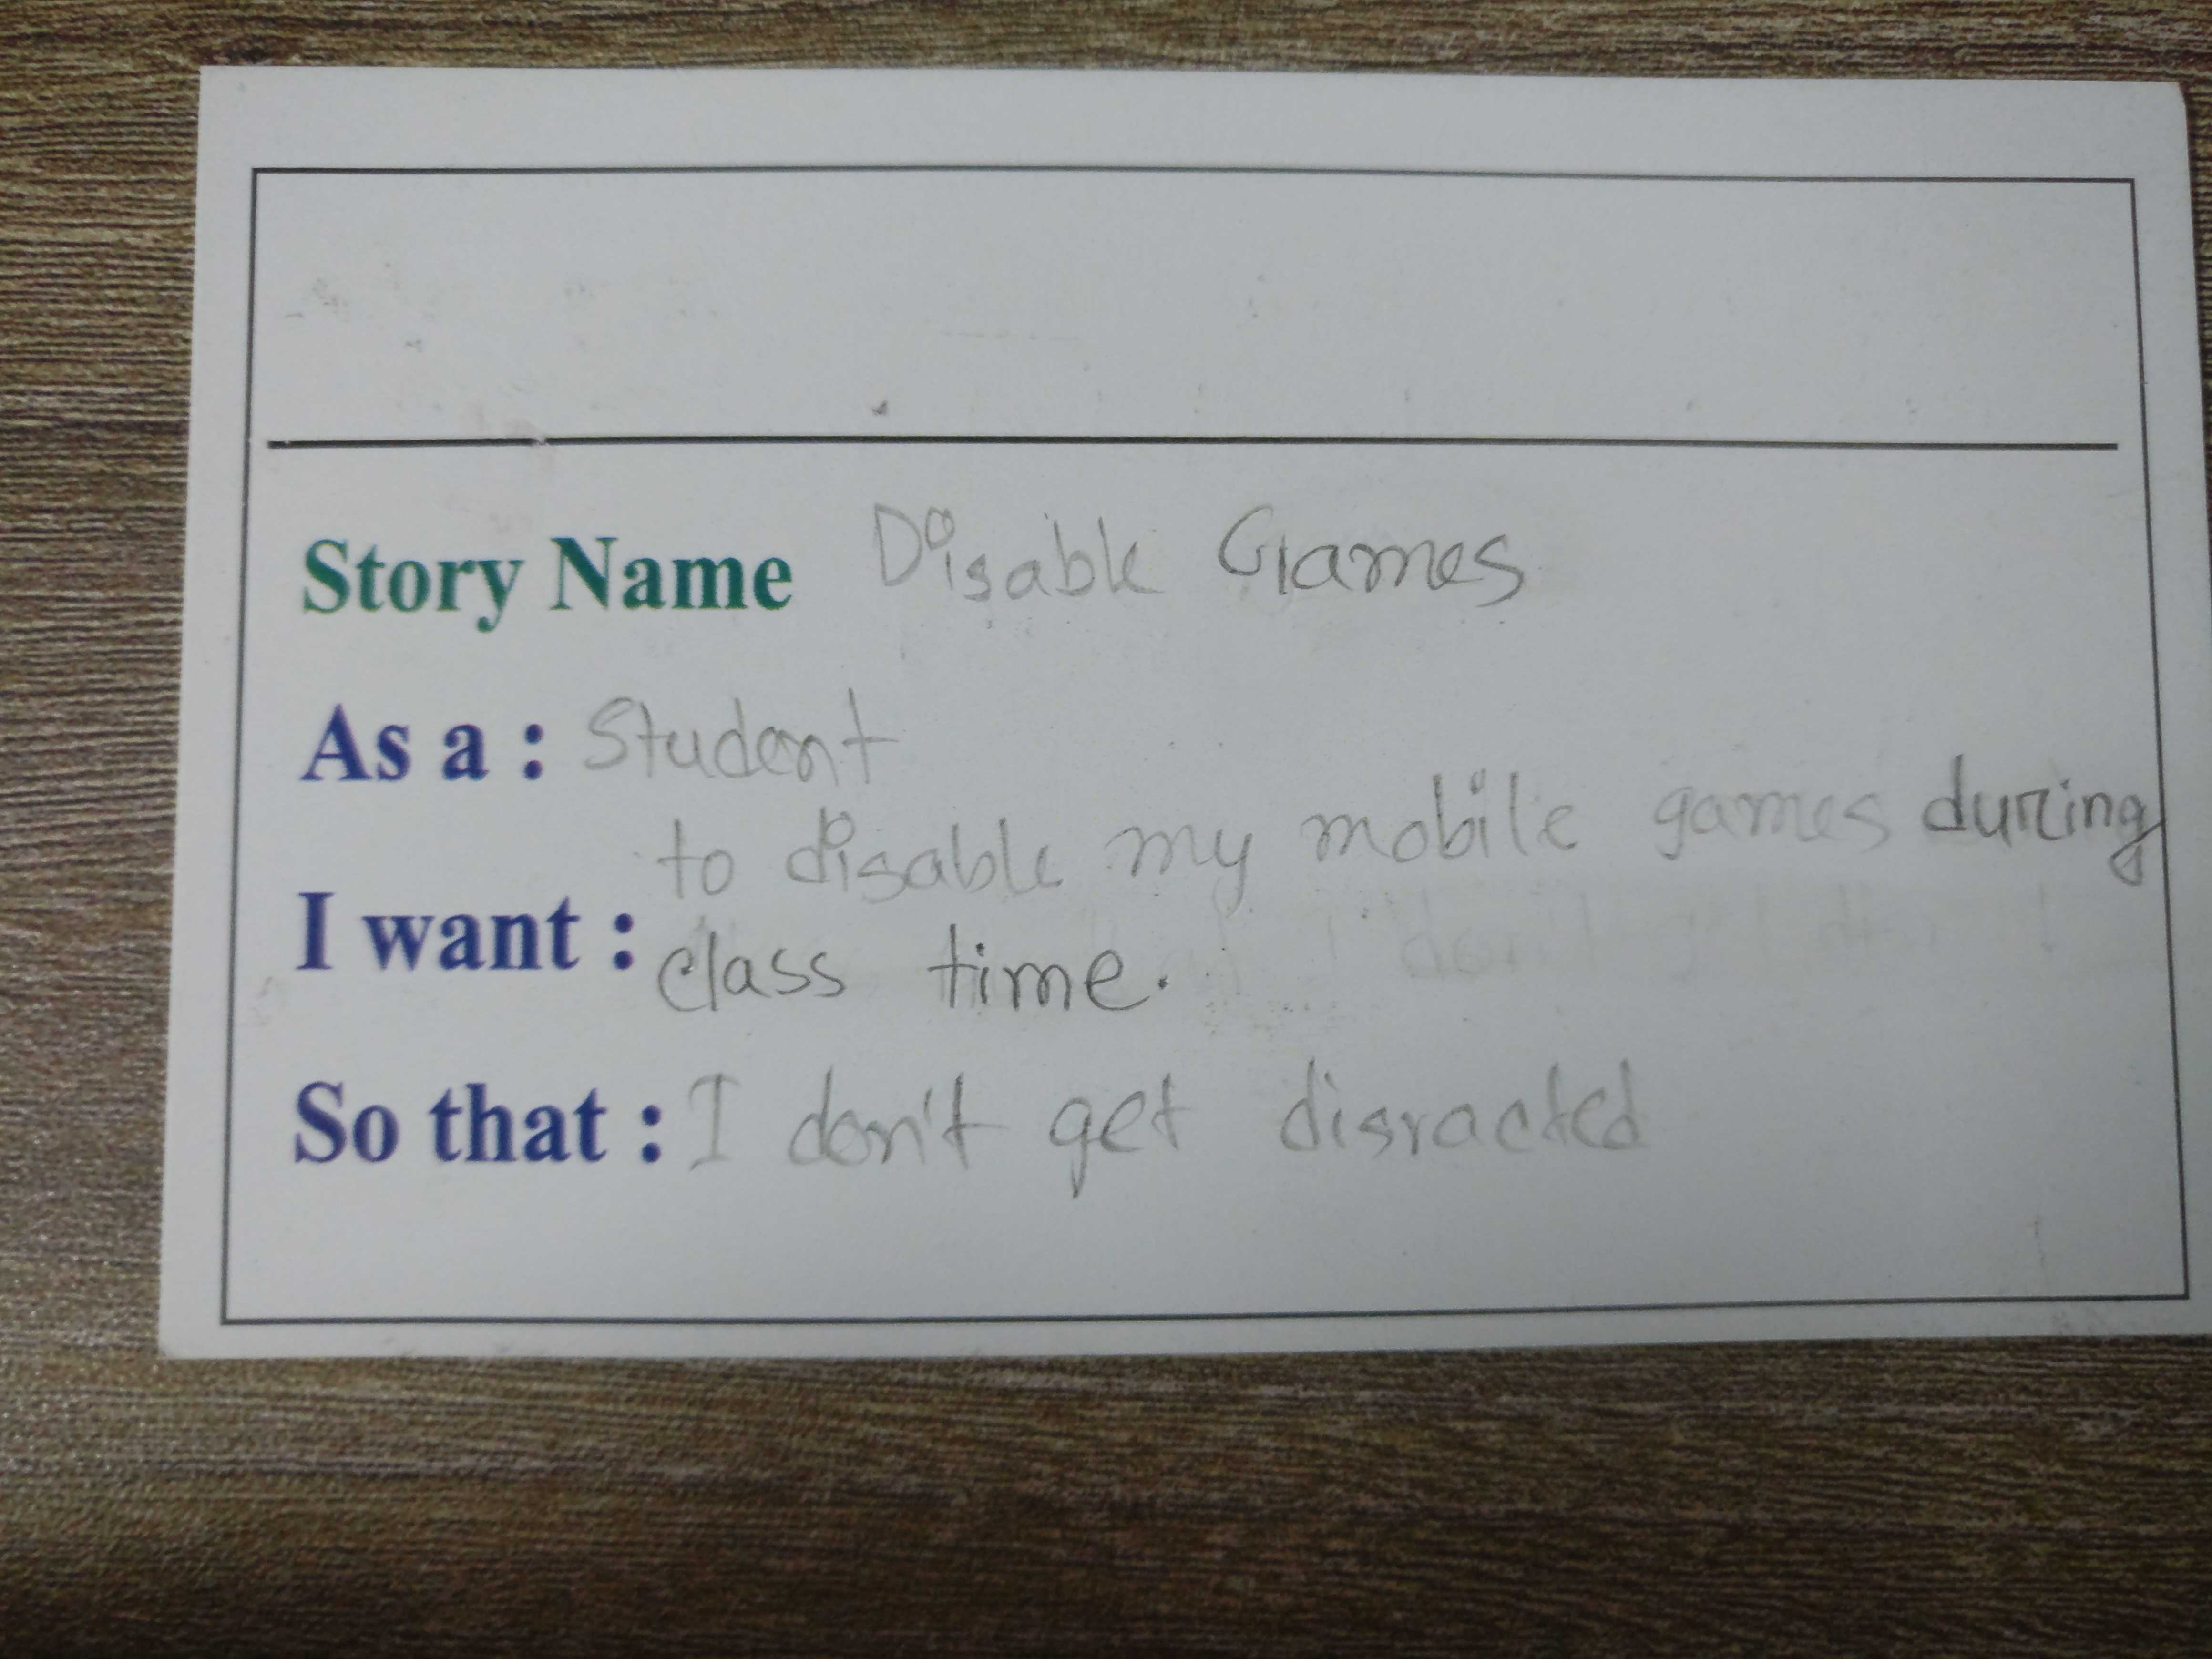 Story Name Disable Games
As a : Student
to disable my mobile games during
I want : class time.
So that : I don't get disracted